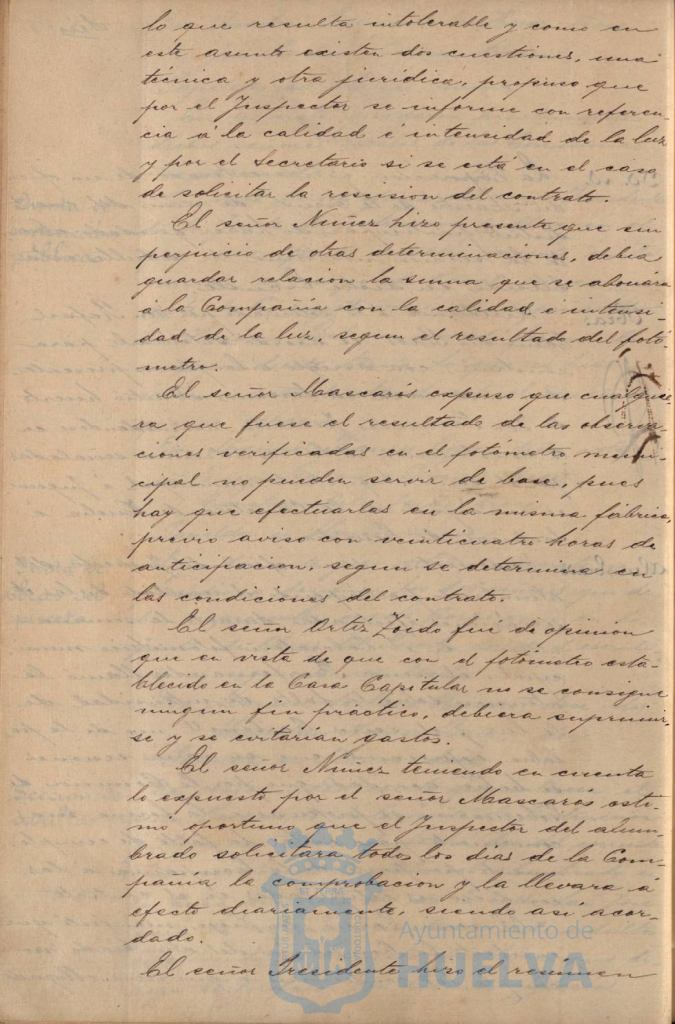 lo que resulta intolerable y como en
este asunto existen dos cuestiones, una
técnica y otra jurídica, propuso que
por el Inspector se informe con referen-
cia á la calidad é intensidad de la luz
y por el Secretario si se está en el caso
de solicitar la rescision del contrato.
El señor Nuñez hizo presente que sin
perjuicio de otras determinaciones, debia
guardar relacion la suma que se abonára
á la Compañía con la calidad é intensi-
dad de la luz, segun el resultado del fotó-
metro.
El señor Mascarós expuso que cualquie-
ra que fuese el resultado de las observa-
ciones verificadas en el fotómetro muni-
cipal no pueden servir de base, pues
hay que efectuarlas en la misma fábrica,
prévio aviso con veinticuatro horas de
anticipacion, segun se determina en
las condiciones del contrato.
El señor Ortiz Zoido fué de opinion
que en vista de que con el fotómetro esta-
blecido en la Casa Capitular no se consigue
ningun fin práctico, debiera suprimir-
se y se evitarian gastos.
El señor Nuñez teniendo en cuenta
lo expuesto por el señor Mascarós esti-
mo oportuno que el Inspector del alum-
brado solicitára todos los dias de la Com-
pañía la comprobacion y la llevara á
efecto diariamente, siendo así acor-
dado.
El señor Presidente hizo el resúmen
Ayuntamiento de
HUELVA